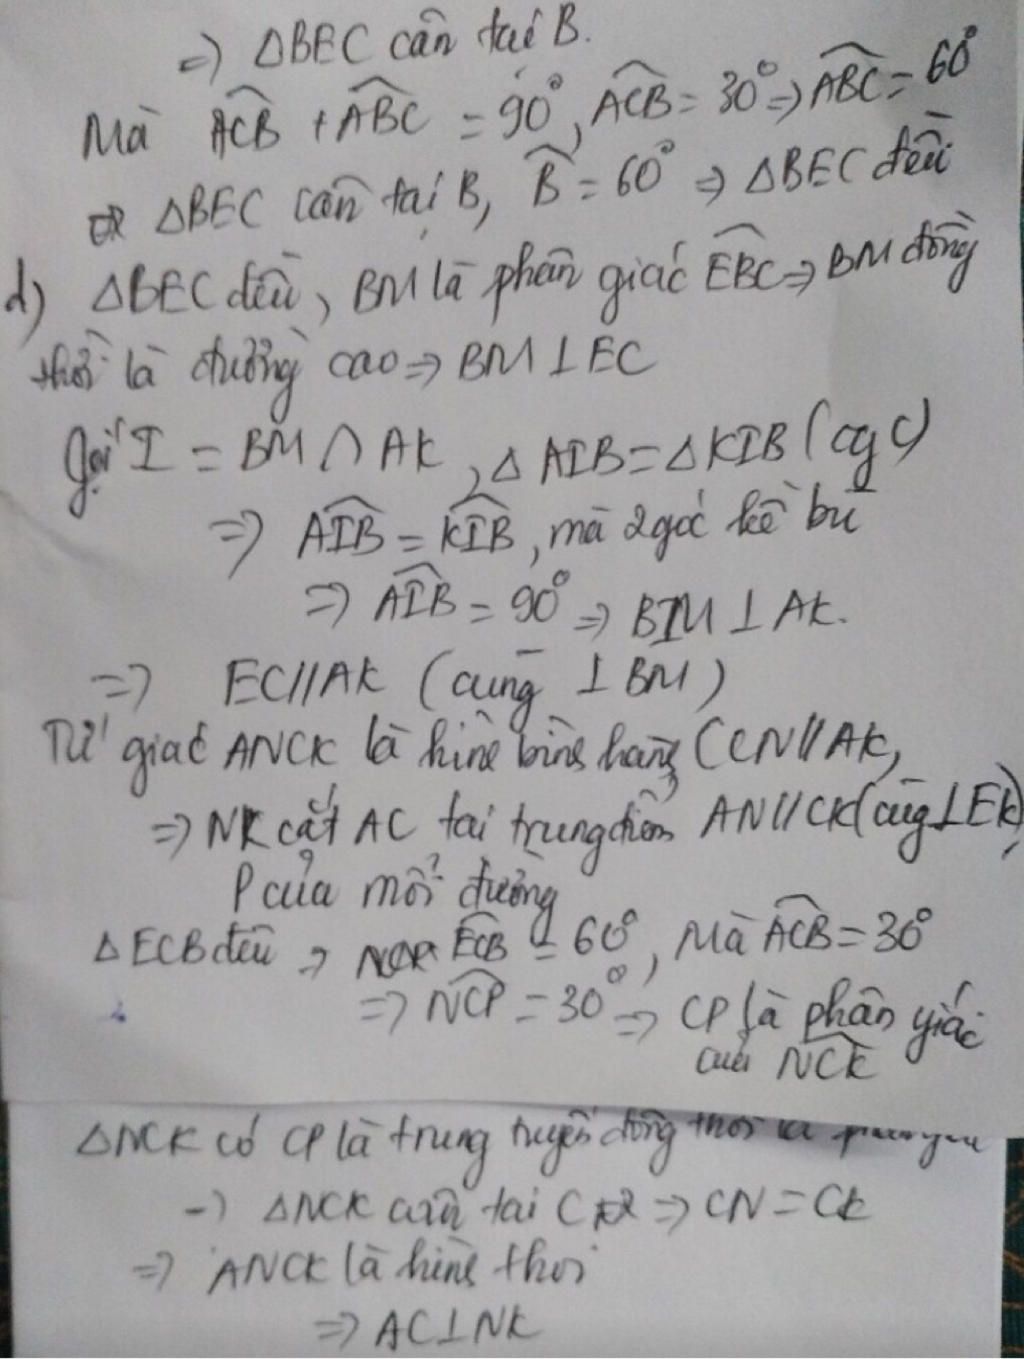 => ΔBEC cân tại B.
Mà ACB + ABC = 90°, ACB = 30° => ABC = 60°
ΔBEC cân tại B, B = 60° => ΔBEC đều
d) ΔBEC đều, BM là phân giác EBC => BM đồng
thời là đường cao => BM ⊥ EC
Gọi I = BM ∩ AK, Δ AIB = Δ KIB (cgc)
=> AIB = KIB, mà 2 góc kề bù
=> AIB = 90° => BM ⊥ AK.
=> EC // AK (cùng ⊥ BM)
Tứ giác ANCK là hình bình hành (CN // AK,
=> NK cắt AC tại trung điểm AN // CK (cùng ⊥ EK)
P của mỗi đường
ΔECB đều => ECB = 60°, Mà ACB = 30°
=> NCP = 30° => CP là phân giác
của NCK
ΔNCK có CP là trung tuyến đồng thời là phân giác
-> ΔNCK cân tại C => CN = CK
=> ANCK là hình thoi
=> AC ⊥ NK